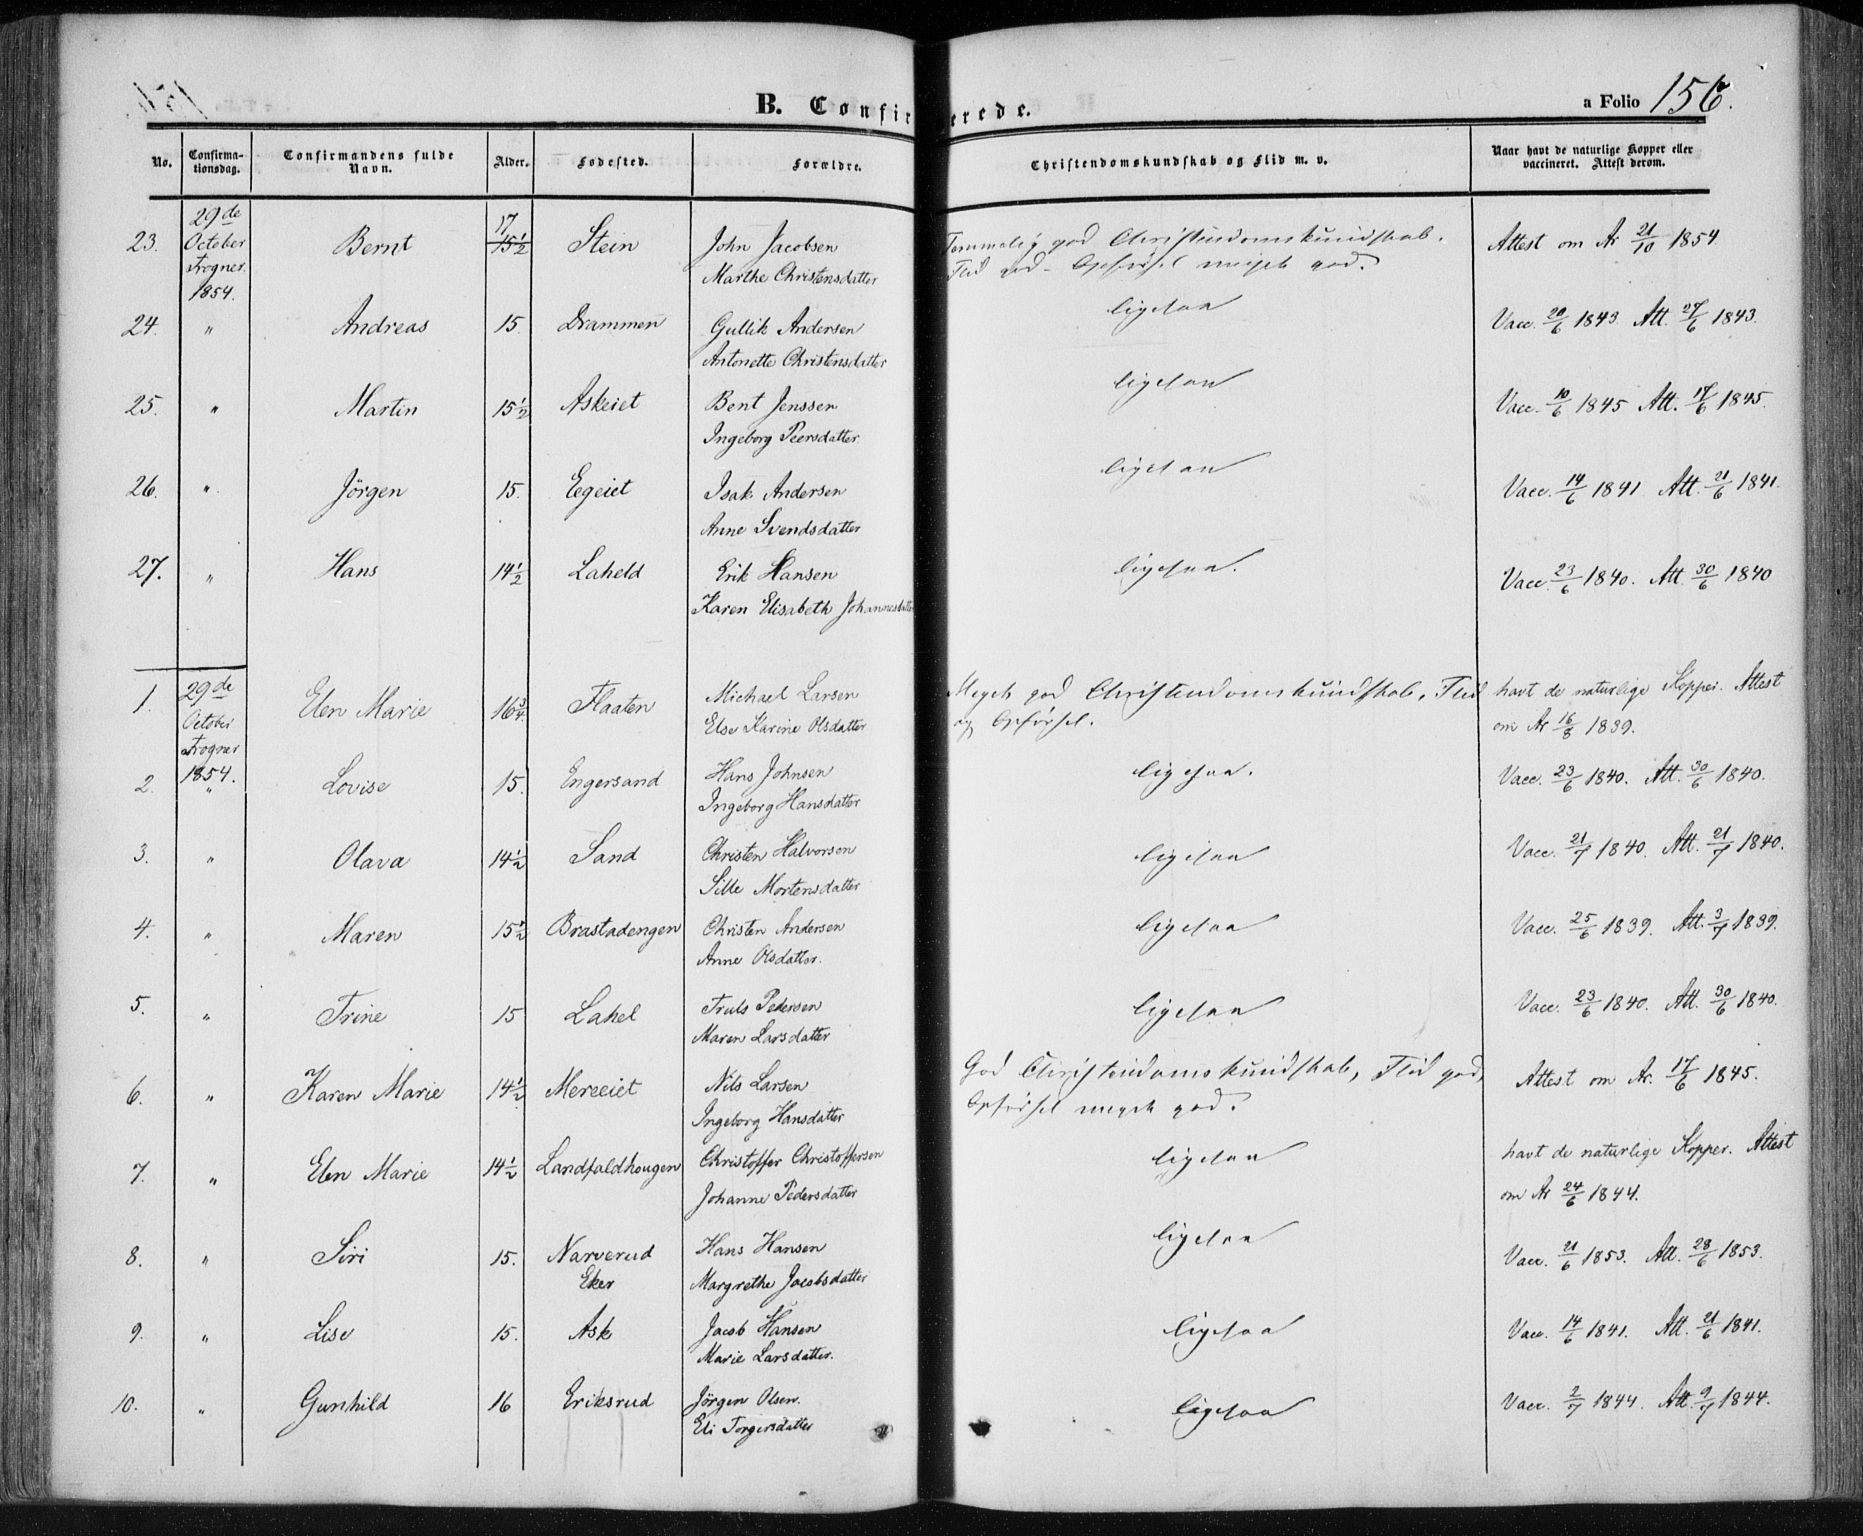 B. Confirmerede.
a Folio 156.
No.
Confirma-
tionsdag.
Confirmandens fulde
Navn.
Alder.
Fødested.
Forældre.
Christendomskundskab og Flid m. v.
Naar havt de naturlige Kopper eller
vaccineret. Attest derom.
23. 29de October Frogner. 1854. Bernt 17 15½ Stein John Jacobsen Temmelig god Christendomskundskab. Attest om Ar 21/10 1854.
Marthe Christensdatter Flid god - Opførsel meget god.
24. " Andreas 15. Drammen Gullik Andersen ligesaa Vacc. 20/6 1843. Att. 27/6 1843.
Antonette Christensdatter
25. " Martin 15½ Askeiet Bent Jenssen ligesaa Vacc. 10/6 1845 Att. 17/6 1845.
Ingeborg Peersdatter.
26. " Jörgen 15. Eegeiet Isak Andersen ligesaa Vacc. 14/6 1841 Att. 21/6 1841.
Anne Svendsdatter
27. " Hans 14½ Laheld Erik Hansen ligesaa. Vacc. 23/6 1840. Att. 30/6 1840
Karen Elisabeth Johannesdatter
1. 29de October Frogner 1854. Elen Marie 16¾ Flaaten Michael Larsen Meget god Christendomskundskab, Flid havt de naturlige Kopper. Attest
Else Karine Olsdatter og Opførsel. om Ar 16/8 1839.
2. " Lovise 15. Engersand Hans Johnsen ligesaa. Vacc. 23/6 1840. Att. 30/6 1840.
Ingeborg Hansdatter
3. " Olava 14½ Sand Christen Halvorsen ligesaa Vacc. 21/7 1840. Att. 21/7 1840.
Sille Mortensdatter
4. " Maren 15½ Brastadengen Christen Andersen ligesaa Vacc. 25/6 1839. Att. 3/7 1839.
Anne Olsdatter.
5. " Trine 15 Lahel Truls Pedersen ligesaa Vacc. 23/6 1840. Att. 30/6 1840.
Maren Larsdatter
6. " Karen Marie 14½ Mereeiet Nils Larsen God Christendomskundskab, Flid god, Attest om Ar. 17/6 1845.
Ingeborg Hansdatter Opførsel meget god.
7. " Elen Marie 14½ Landfaldhougen Christoffer Christoffersen ligesaa havt de naturlige Kopper. Attest
Johanne Pedersdatter om Ar 24/6 1844.
8. " Siri 15. Narverud Hans Hansen ligesaa Vacc. 21/6 1853. Att. 28/6 1853.
Eker Margrethe Jacobsdatter
9. " Lise 15. Ask Jacob Hansen ligesaa Vacc. 14/6 1841. Att. 21/6 1841.
Marie Larsdatter.
10. " Gunhild 16 Eriksrud Jörgen Olsen. ligesaa Vacc. 2/7 1844. Att. 9/7 1844.
Eli Torgersdatter